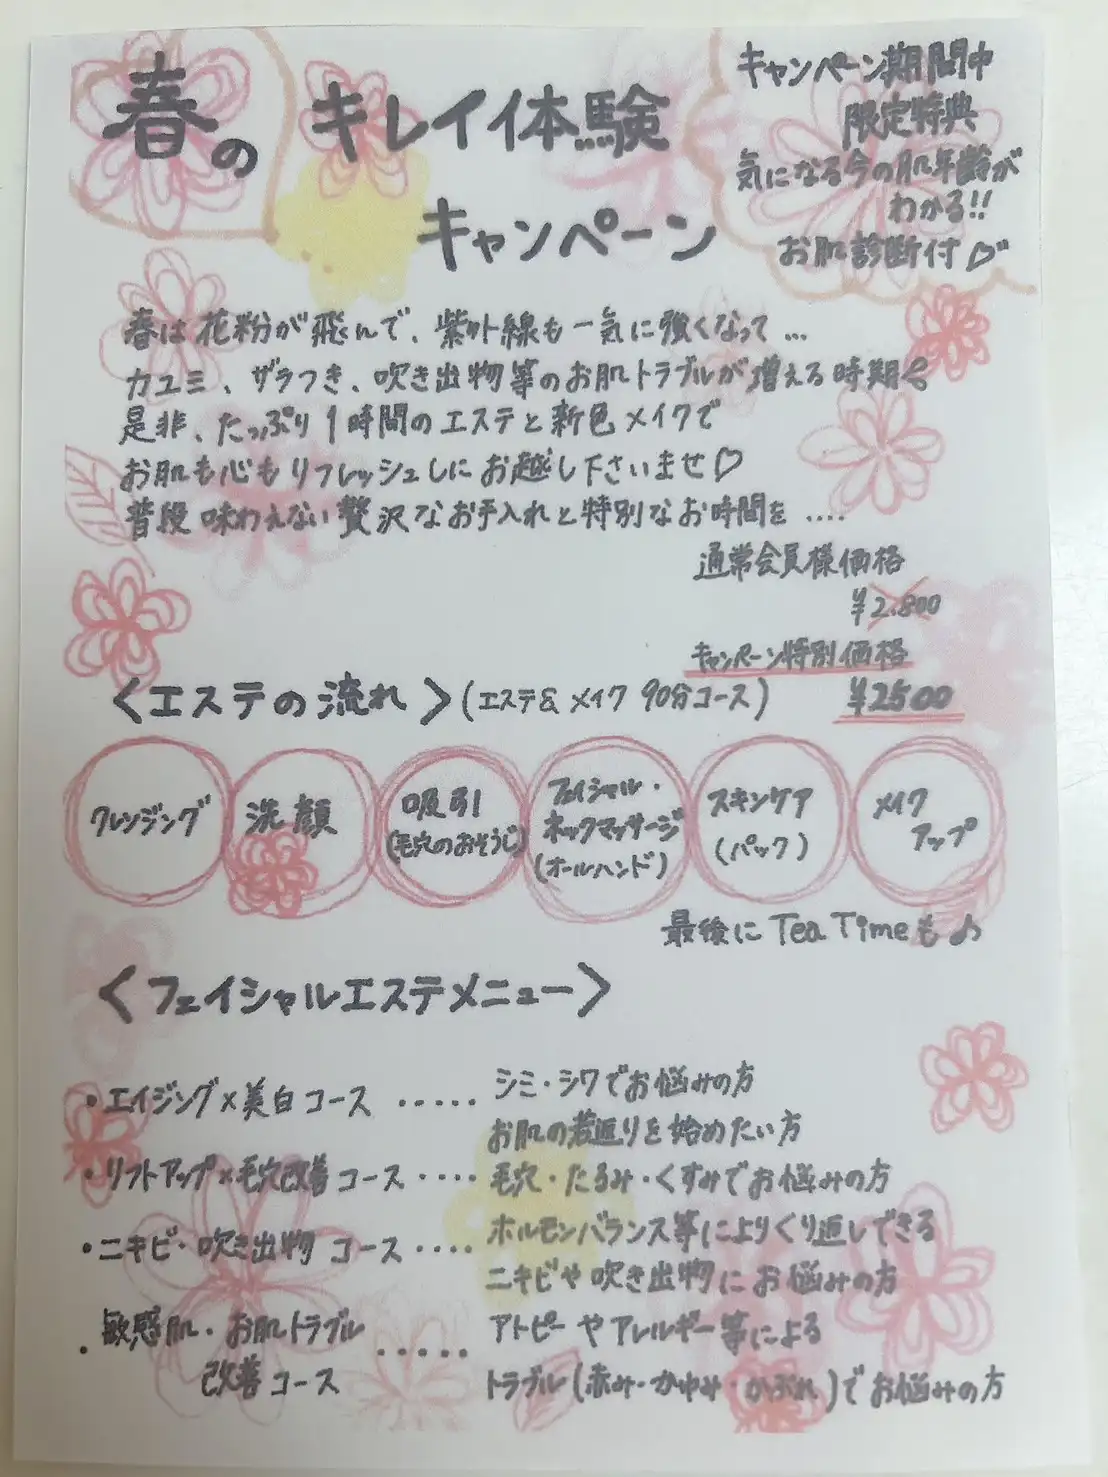 春の キレイ体験
キャンペーン
キャンペーン期間中
限定特典
気になる今の肌年齢が
わかる!!
お肌診断付♡
春は花粉が飛んで、紫外線も一気に強くなって…
カユミ、ザラつき、吹き出物等のお肌トラブルが増える時期
是非、たっぷり1時間のエステと新色メイクで
お肌も心もリフレッシュしにお越し下さいませ♡
普段味わえない贅沢なお手入れと特別なお時間を….
通常会員様価格
¥2.800
キャンペーン特別価格
¥2500
〈エステの流れ〉(エステ&メイク 90分コース)
クレンジング
洗顔
吸引
(毛穴のおそうじ)
フェイシャル・
ネックマッサージ
(オールハンド)
スキンケア
(パック)
メイク
アップ
最後に Tea Timeも♪
〈フェイシャルエステメニュー〉
・エイジング×美白コース ・・・・・ シミ・シワでお悩みの方
お肌の若返りを始めたい方
・リフトアップ×毛穴改善コース ・・・・ 毛穴・たるみ・くすみでお悩みの方
・ニキビ・吹き出物 コース ・・・・ ホルモンバランス等によりくり返しできる
ニキビや吹き出物にお悩みの方
・敏感肌・お肌トラブル
改善コース ・・・・・ アトピーやアレルギー等による
トラブル(赤み・かゆみ・かぶれ)でお悩みの方